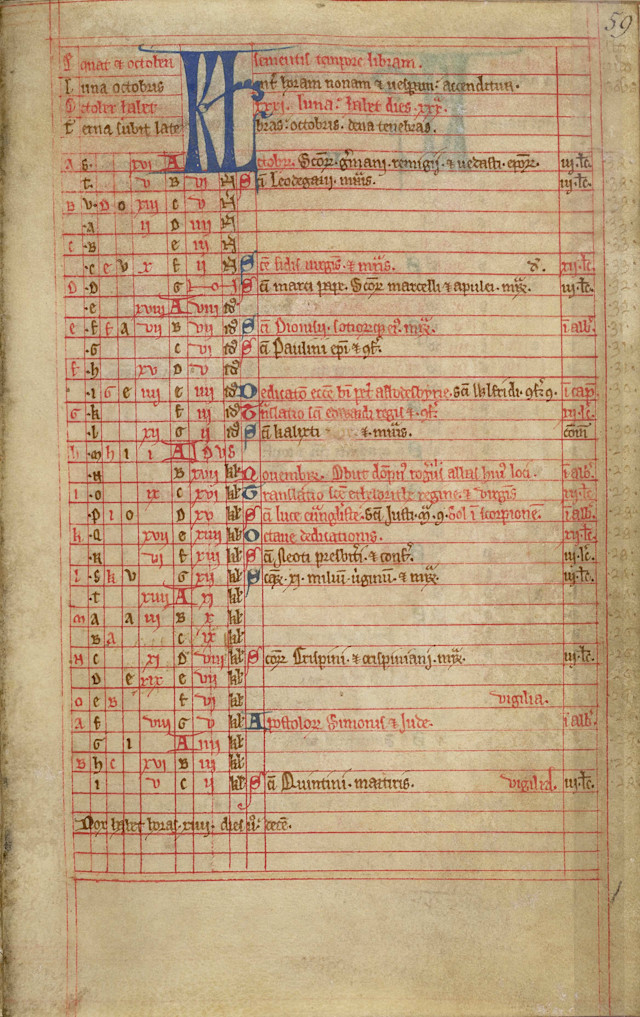 59
quat & octobri KL sementis tempore libram.
Luna octobris nt horam nonam & uespam: accenditur.
October habet XXXI. luna: habet dies .xxx.
Terna subit late bras: octobris. dena tenebras.
a s. xvi A ctobr. Scor gmani. remigij. & uedasti. epor. iij. lc.
t. v B vi S ci Leodegarij. mris. iij. lc.
B v. D o xiii c v
a ii D iiii
c B e iii
c e v x f ii S ce fidis uirginis. & mris. d. xii. lc.
D D G S ci marci pape. Scor marcelli & apulei. mr. iij. lc.
e xviii A viii id
e f f A vii B vii id S ci Dionisii. socior eius. mr. i alb.
G c vi id S ci Paulini epi & cf.
f h xv D v id
i G e iiii e iiii id Dedicato ecce bi pet. Sci Wilfridi. i cap
G k f iii id Translatio sci edwardi regis & cf. xii. lc.
l xii G ii id S ci kalixti pape. & mris. com
h m h i i A DUS
n B xvii kl Nouembr. Obitus dopni rogerii abbas huius loci. i alb.
i o ix c xvi kl Translatio sce etheldrede regine. & uirginis iij. lc.
p i o D xv kl S ci luce euangliste. Sci Justi. Sol i scorpione. i alb.
k q xvii e xiiii kl Octaue dedicationis. xii. lc.
r vi f xiii kl S ci fleoti presbiteri. & conf. iij. lc.
l s k v G xii kl S cor. xi. milium uirginum. & mr. iij. lc.
t xiiii A xi kl
m a a iii B x kl
B a c ix kl
n c xi D viii kl S cor Crispini. & crispiniani. mr. iij. lc.
D e xix e vii kl
o e B f vi kl vigilia.
a f viii G v kl Apostolor Simonis & Jude. i alb.
G i A iiii kl
B h c xvi B iii kl
i v c ii kl S ci Quintini. martiris. vigilia. iij. lc.
Nox habet horas. xiiii. dies u: dece.